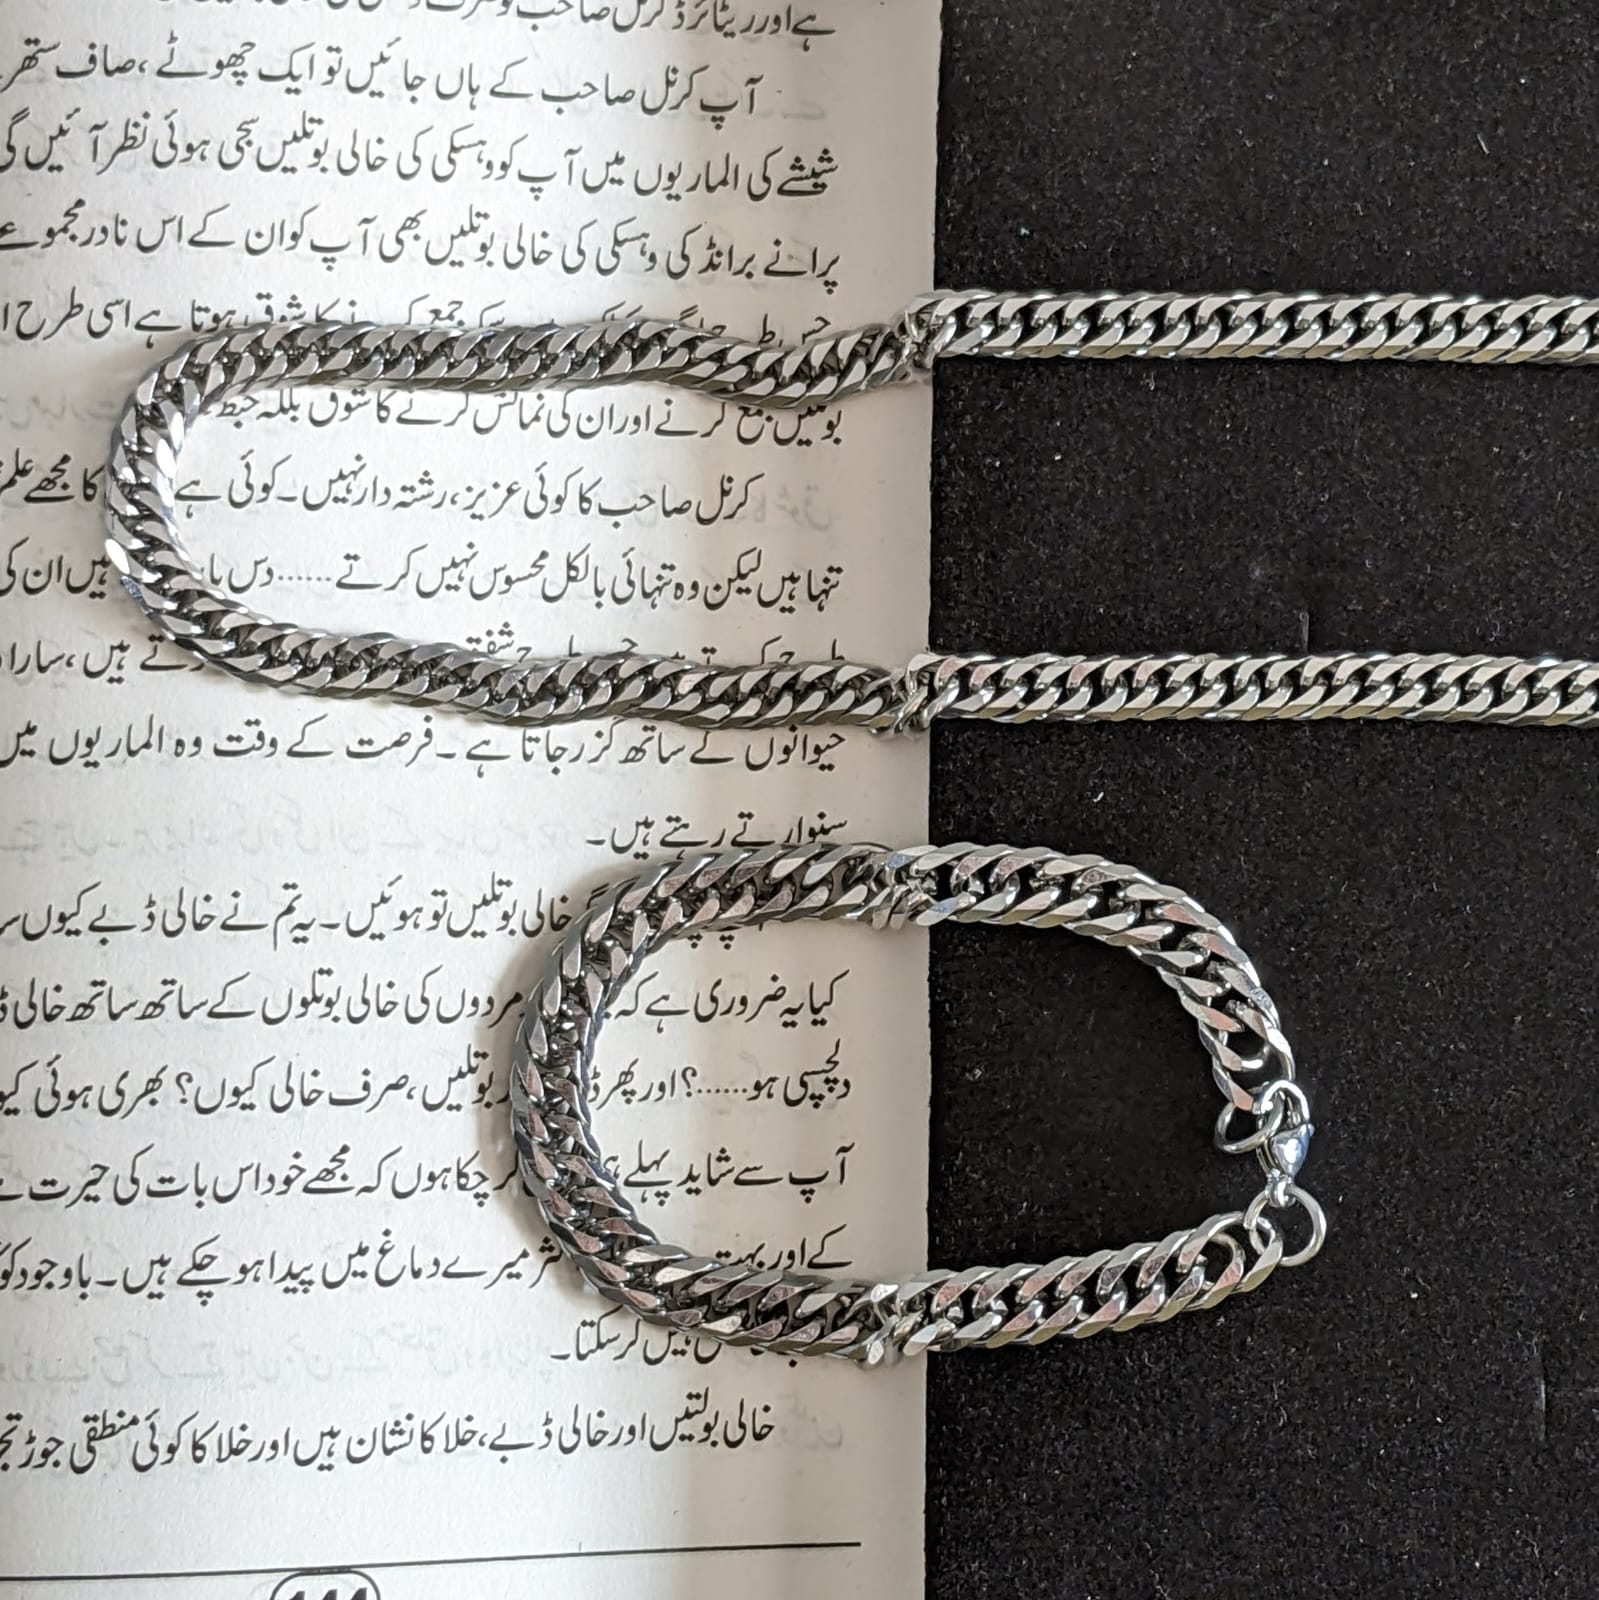 ہے اور ریٹائرڈ کرنل صاحب کو صرف
آپ کرنل صاحب کے ہاں جائیں تو ایک چھوٹے، صاف ستھر
شیشے کی الماریوں میں آپ کو وہسکی کی خالی بوتلیں سجی ہوئی نظر آئیں گی
پرانے برانڈ کی وہسکی کی خالی بوتلیں بھی آپ کو ان کے اس نادر مجموعے
جس جمع کرنے کا شوق ہوتا ہے اسی طرح
بوتلیں جمع کرنے اور ان کی نمائش کرنے کا شوق بلکہ خبط
کرنل صاحب کا کوئی عزیز، رشتہ دار نہیں۔ کوئی ہے کا مجھے علم
تنہا ہیں لیکن وہ تنہائی بالکل محسوس نہیں کرتے ...... دس ہیں ان کی
ہیں، سارا
حیوانوں کے ساتھ گزر جاتا ہے۔ فرصت کے وقت وہ الماریوں میں
سنوارتے رہتے ہیں۔
خالی بوتلیں تو ہوئیں۔ یہ تم نے خالی ڈبے کیوں
کیا یہ ضروری ہے کہ مردوں کی خالی بوتلوں کے ساتھ ساتھ خالی
دلچسپی ہو ......؟ اور پھر بوتلیں، صرف خالی کیوں؟ بھری ہوئی
آپ سے شاید پہلے چکا ہوں کہ مجھے خود اس بات کی حیرت
کے اور بہت میرے دماغ میں پیدا ہو چکے ہیں۔ باوجود
نہیں کر سکتا۔
خالی بوتلیں اور خالی ڈبے، خلا کا نشان ہیں اور خلا کا کوئی منطقی جوڑ